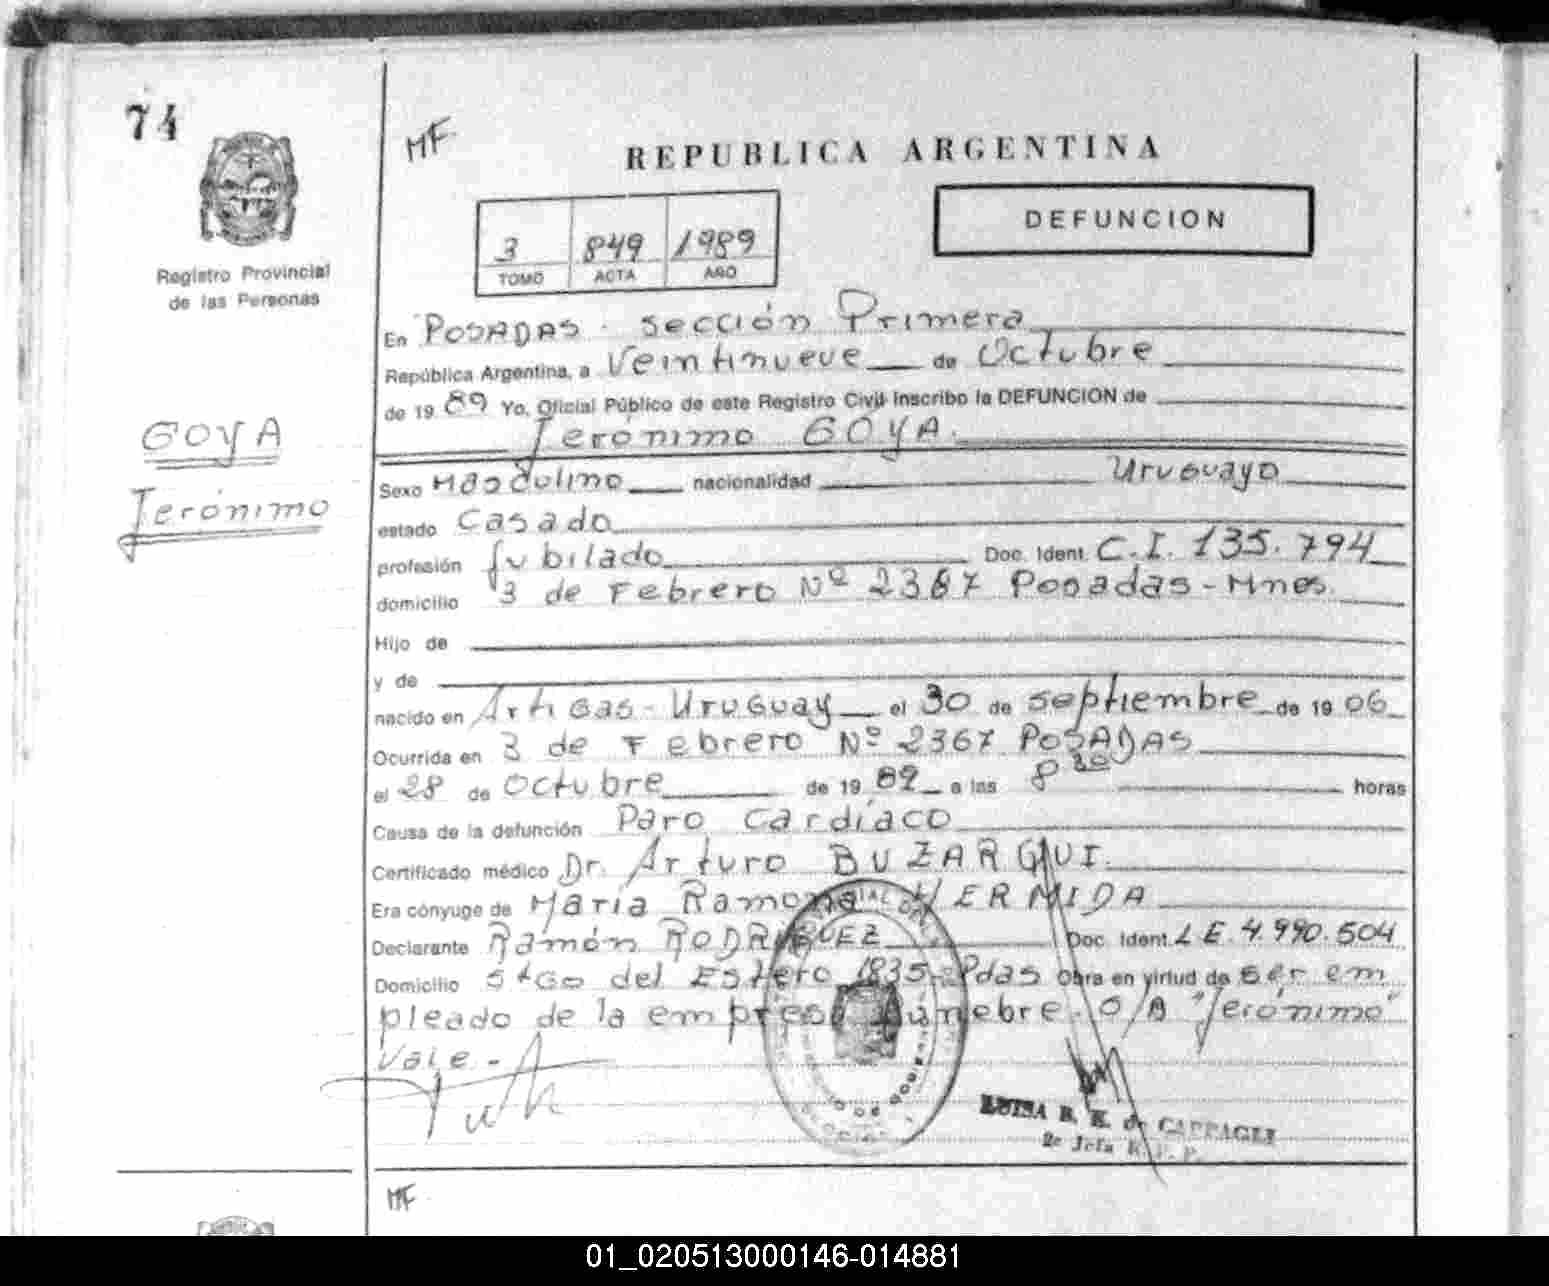 74
MF
REPUBLICA ARGENTINA
DEFUNCION
3 849 1989
TOMO ACTA AÑO
Registro Provincial
de las Personas
GOYA
Jerónimo
En POSADAS - Sección Primera
República Argentina, a Veintinueve de Octubre
de 1989 Yo, Oficial Público de este Registro Civil inscribo la DEFUNCION de
Jerónimo GOYA.
Sexo Masculino nacionalidad Uruguayo
estado Casado
profesión Jubilado Doc. Ident. C.I. 135.794
domicilio 3 de Febrero Nº 2367 Posadas - Mnes.
Hijo de
y de
nacido en Artigas - Uruguay el 30 de septiembre de 1906
Ocurrida en 3 de Febrero Nº 2367 POSADAS
el 28 de Octubre de 1989 a las 8 30 horas
Causa de la defunción Paro Cardíaco
Certificado médico Dr. Arturo BUZARQUI.
Era cónyuge de María Ramona HERMIDA
Declarante Ramón RODRIGUEZ Doc. Ident. L E. 4.990.504
Domicilio Stgo del Estero 1835 - Pdas Obra en virtud de ser em
pleado de la empresa fúnebre. S/B "Jerónimo"
Vale -
LUISA B. K. de
2e Jefa R. P. P.
MF
01_020513000146-014881